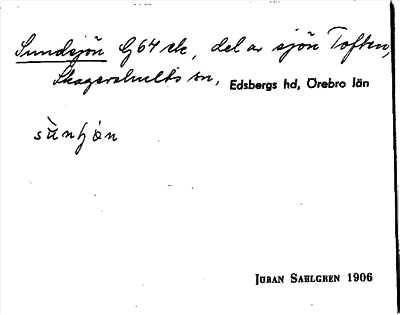 Sundsjön G64 ek, del av sjön Toften,
Skagershults sn, Edsbergs hd, Örebro län
sùnʃön
JÖRAN SAHLGREN 1906